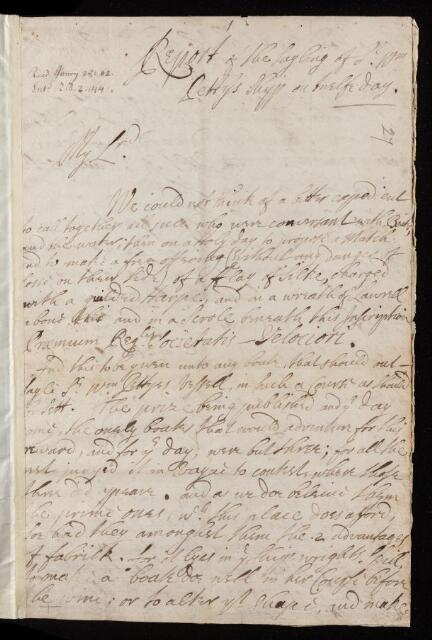 Report of the sayling of Sr. Wm
Read Janry 28: 62.
Pettys shipp on twelfe day.
27
My Ld.
We could not think of a better expedient
to call together all such who were conversant with Boats
and the water, than on a holy day to propose a Match
and to make a free offering without any danger of
losse on their side of a flag of silke, charged
with a guilded Harpe, and in a wreath of Lawrell
above and in a scrole beneath this Inscription
Præmium Regiæ Societatis Velociori.
And this to be given unto any boate, that should out-
sayle Sr. Wm Pettyes Vessell, in such a Course as should
be sett. The prize being published and ye day
come, the onely boates that would adventure for this
reward, and for ye day, were but three; for all the
rest judged it in vayne to contest, where those
three did appeare. and as we doe believe them
the prime ones, wch this place does afford,
so had they amongst them the 2 advantages
of fabrick. It lyes in ye shipwrights skill,
to make a boate doe well in her Course before
the ; or to alter yt shape, and make